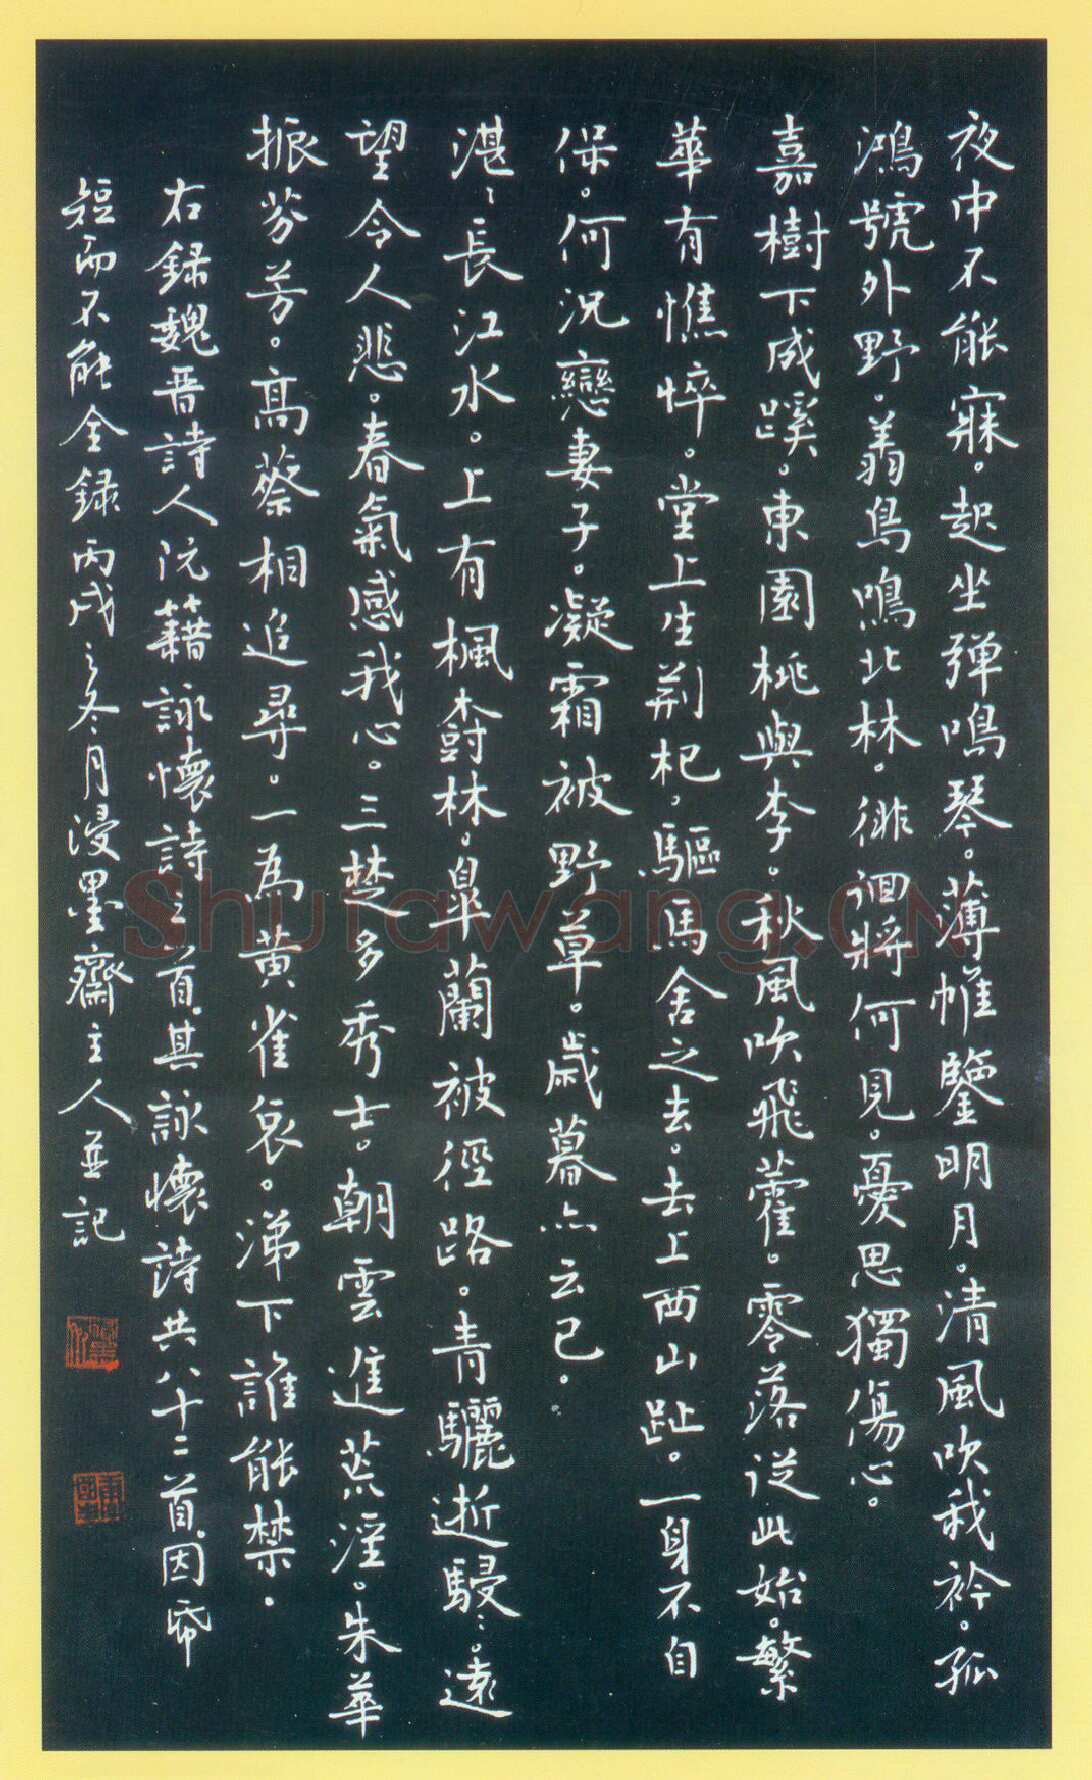 夜中不能寐。起坐弹鳴琴。薄帷鑒明月。清風吹我衿。孤
鴻號外野。翔鳥鳴北林。徘徊將何見。憂思獨傷心。
嘉樹下成蹊。東園桃與李。秋風吹飛藿。零落從此始。繁
華有憔悴。堂上生荆杞。驅馬舍之去。去上西山趾。一身不自
保。何況戀妻子。凝霜被野草。歲暮亦云已。
湛〻長江水。上有楓樹林。皐蘭被徑路。青驪逝駸〻。遠
望令人悲。春氣感我心。三楚多秀士。朝雲進荒淫。朱華
振芬芳。高蔡相追尋。一為黄雀哀。涕下誰能禁。
右録魏晋詩人阮籍詠懷詩三首。其詠懷詩共八十二首。因帋
短而不能全録丙戌之冬月浸墨齋主人並記
Shufawang.CN